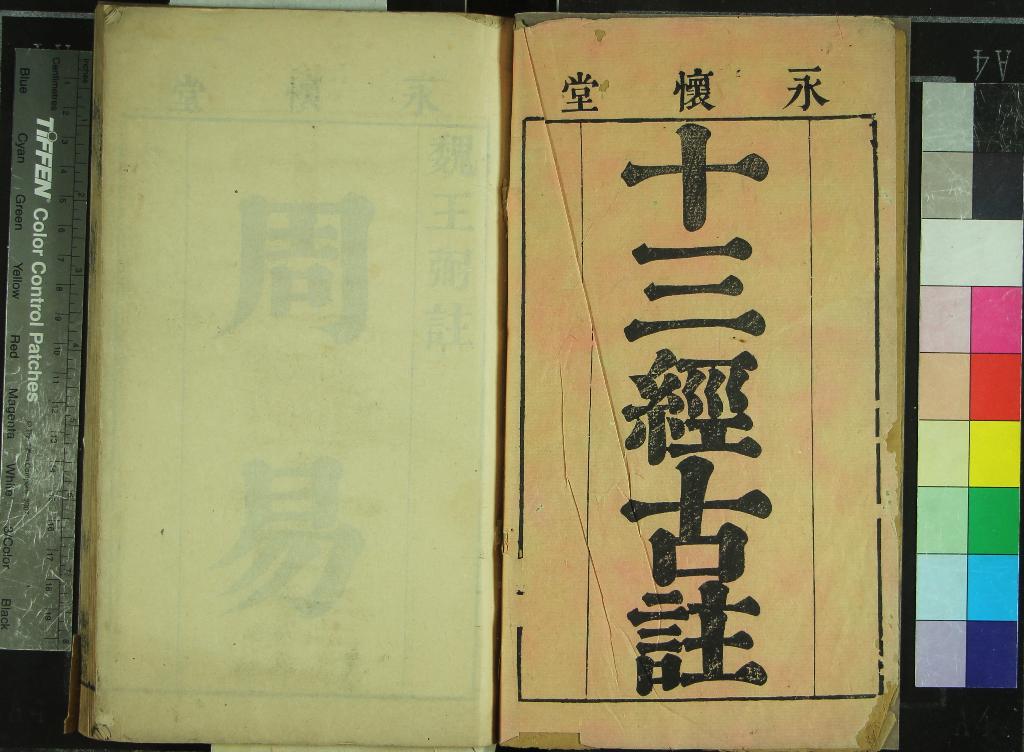 永懷堂
十三經古註
永懷堂
魏王弼註
周易
TIFFEN Color Control Patches
Blue Cyan Green Yellow Red Magenta White 3/Color Black
Centimetres
Inches
A4